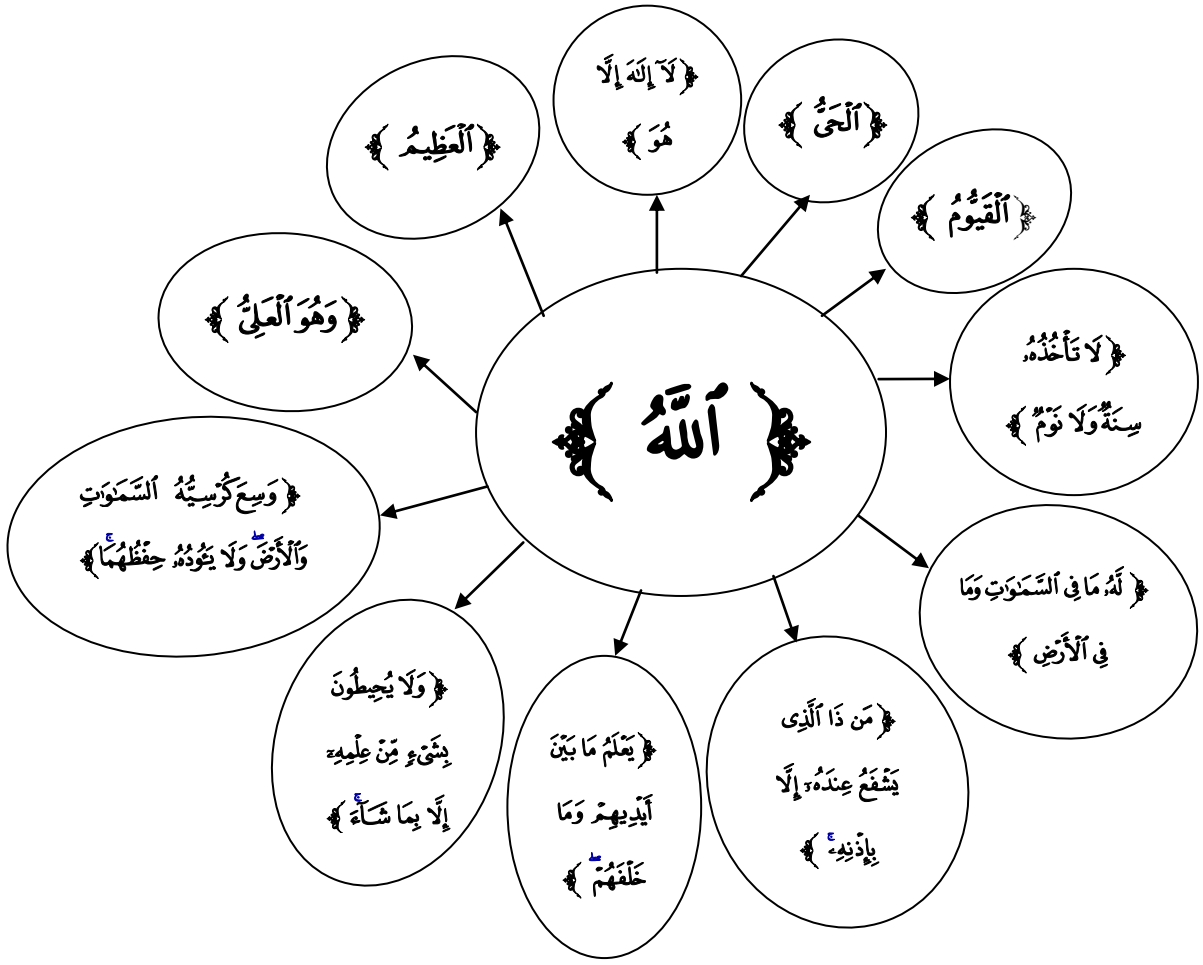 ﴿ ٱللَّهُ ﴾
﴿ لَآ إِلَٰهَ إِلَّا
هُوَ ﴾
﴿ ٱلْحَىُّ ﴾
﴿ ٱلْقَيُّومُ ﴾
﴿ لَا تَأْخُذُهُۥ
سِنَةٌ وَلَا نَوْمٌ ﴾
﴿ لَّهُۥ مَا فِى ٱلسَّمَٰوَٰتِ وَمَا
فِى ٱلْأَرْضِ ﴾
﴿ مَن ذَا ٱلَّذِى
يَشْفَعُ عِندَهُۥٓ إِلَّا
بِإِذْنِهِۦ ۚ ﴾
﴿ يَعْلَمُ مَا بَيْنَ
أَيْدِيهِمْ وَمَا
خَلْفَهُمْ ۖ ﴾
﴿ وَلَا يُحِيطُونَ
بِشَىْءٍ مِّنْ عِلْمِهِۦٓ
إِلَّا بِمَا شَآءَ ۚ ﴾
﴿ وَسِعَ كُرْسِيُّهُ ٱلسَّمَٰوَٰتِ
وَٱلْأَرْضَ ۖ وَلَا يَـُٔودُهُۥ حِفْظُهُمَا ۚ ﴾
﴿ وَهُوَ ٱلْعَلِىُّ ﴾
﴿ ٱلْعَظِيمُ ﴾